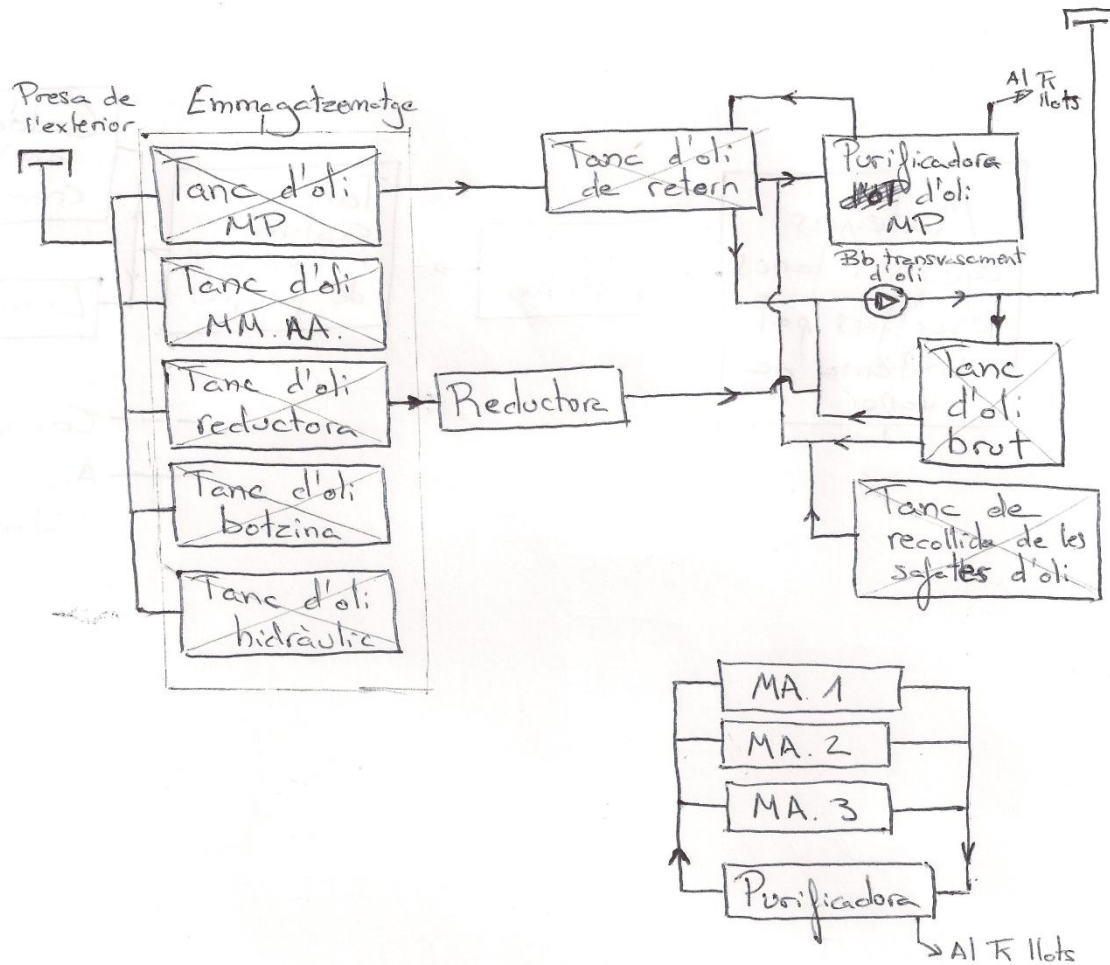 Presa de
l'exterior
Emmagatzematge
Tanc d'oli
MP
Tanc d'oli
MM. AA.
Tanc d'oli
reductora
Tanc d'oli
botzina
Tanc d'oli
hidràulic
Reductora
Tanc d'oli
de retorn
Purificadora
d'oli
MP
Al Tk
llots
Bb. transvasament
d'oli
Tanc
d'oli
brut
Tanc de
recollida de les
safates d'oli
MA. 1
MA. 2
MA. 3
Purificadora
Al Tk llots